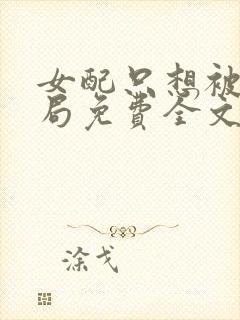 女配只想被
局免费全文
涂戈